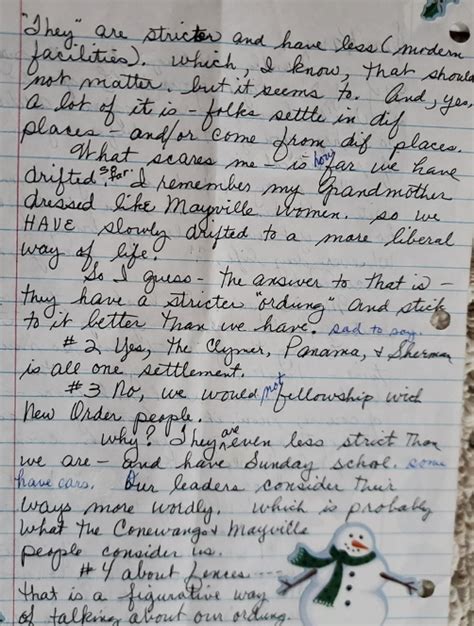 "They" are stricter and have less (modern
facilities). Which, I know, that should
not matter. but it seems to. And, yes,
a lot of it is - folks settle in dif
places - and/or come from dif places.
What scares me - is how far we have
drifted so far. I remember my Grandmother
dressed like Mayville women. so we
HAVE slowly drifted to a more liberal
way of life.
So I guess - the answer to that is -
they have a stricter "ordung" and stick
to it better than we have. sad to say.
#2 Yes, the Clymer, Panama, & Sherman
is all one settlement.
#3 No, we would not fellowship with
New Order people.
why? They are even less strict than
we are - and have Sunday school. some
have cars. Our leaders consider their
ways more wordly. which is probably
what the Conewango & Mayville
people consider us.
#4 about fences ----
that is a figurative way
of talking about our ordung.